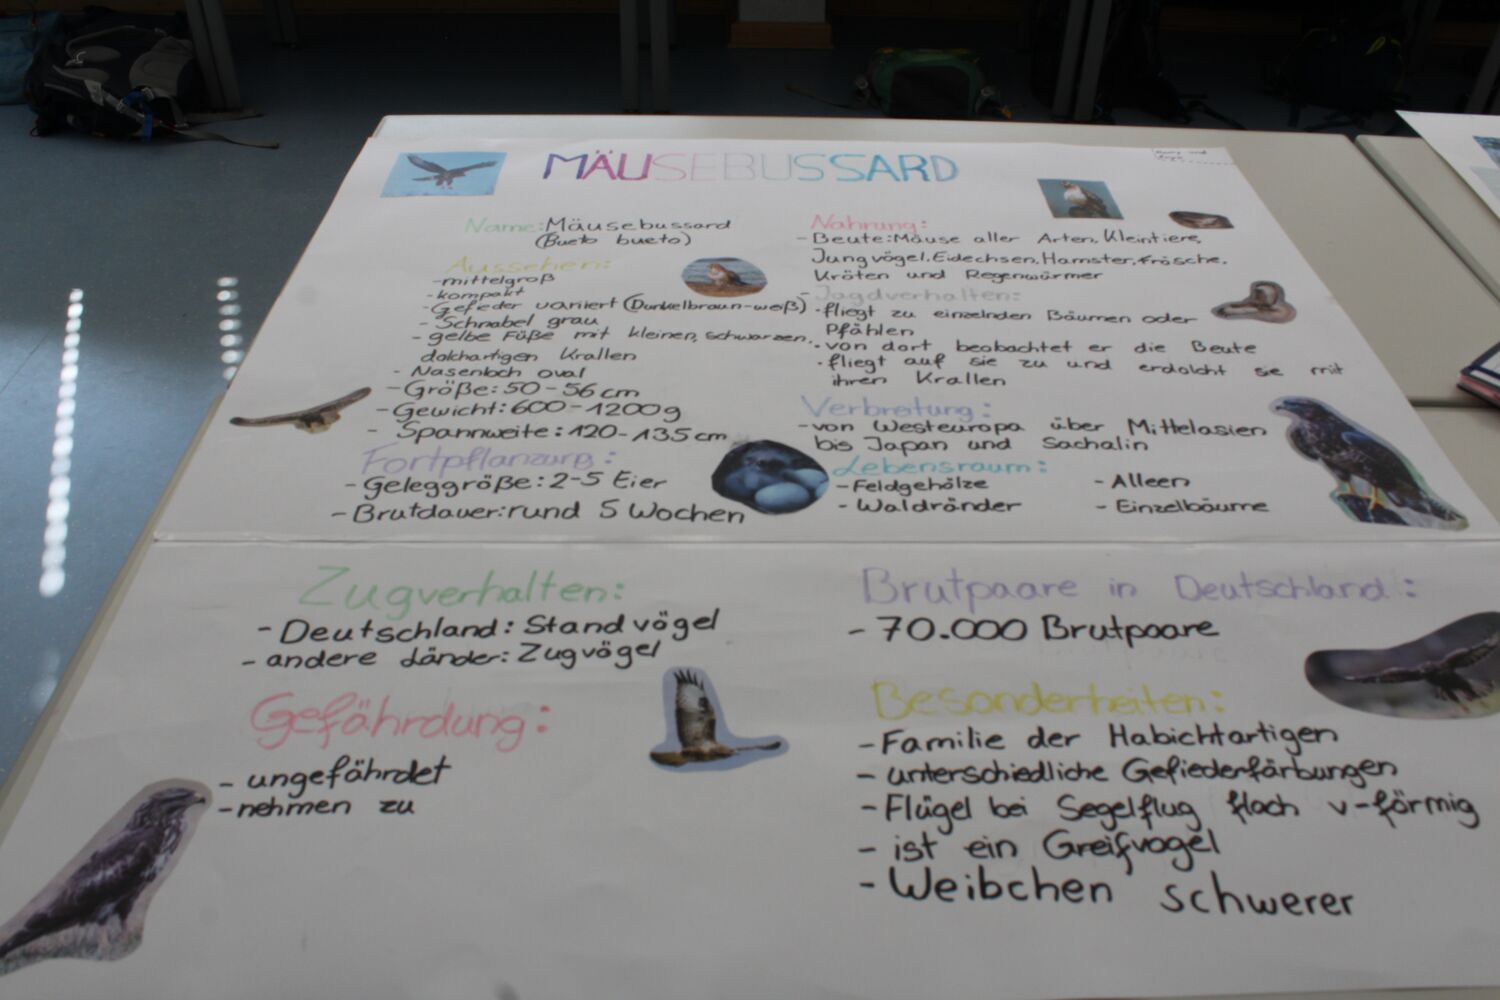 MÄUSEBUSSARD
Name: Mäusebussard
(Bueto bueto)
Aussehen:
-mittelgroß
-kompakt
-Gefieder variiert (Dunkelbraun-weiß)
-Schnabel grau
-gelbe Füße mit kleinen, schwarzen,
dolchartigen Krallen
- Nasenloch oval
-Größe: 50-56 cm
-Gewicht: 600-1200g
- Spannweite: 120-135 cm
Fortpflanzung:
-Geleggröße: 2-5 Eier
-Brutdauer: rund 5 Wochen
Nahrung:
-Beute: Mäuse aller Arten, Kleintiere,
Jungvögel, Eidechsen, Hamster, Frösche,
Kröten und Regenwürmer
-Jagdverhalten:
-fliegt zu einzelnden Bäumen oder
Pfählen
-von dort beobachtet er die Beute
-fliegt auf sie zu und erdolcht sie mit
ihren Krallen
Verbreitung:
-von Westeuropa über Mittelasien
bis Japan und Sachalin
Lebensraum:
-Feldgehölze
-Waldränder
-Alleen
-Einzelbäume
Zugverhalten:
-Deutschland: Standvögel
-andere Länder: Zugvögel
Gefährdung:
-ungefährdet
-nehmen zu
Brutpaare in Deutschland:
-70.000 Brutpaare
Besonderheiten:
-Familie der Habichtartigen
-unterschiedliche Gefiederfärbungen
-Flügel bei Segelflug flach v-förmig
-ist ein Greifvogel
-Weibchen schwerer